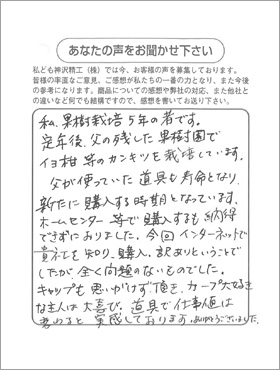 あなたの声をお聞かせ下さい
私ども神沢精工(株)では今、お客様の声を募集しております。
皆様の率直なご意見、ご感想が私たちの一番の力となり、また今後
の参考になります。商品についての感想や弊社の対応、また他社と
の違いなど何でも結構ですので、感想を書いてお送り下さい。
私、果樹栽培5年の者です。
定年後、父の残した果樹園で
イヨ柑等のカンキツを栽培しています。
父が使っていた道具も寿命となり、
新たに購入する時期となっています。
ホームセンター等で購入するも納得
できずにおりました。今回インターネットで
貴社を知り、購入。訳ありということで
したが、全く問題のないものでした。
キャップも思いがけず頂き、カープ大好き
な主人は大喜び。道具で仕事値は
変わると実感しております。ありがとうございました。